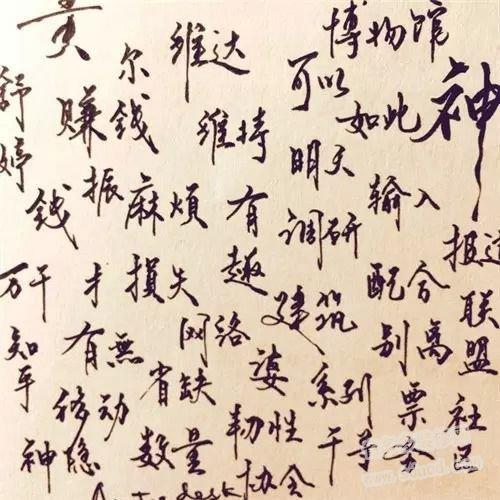 博物馆
维达
尔
黄
神
可以
如此
赚钱
维持
舒婷
明天
输入
钱
振
麻烦
有
调研
报道
趣
配合
万千
才
损失
建筑
联盟
网络
别离
知乎
有無
省缺
婆
系列
票
社区
移动
韧性
干事会
神隐
数量
协会